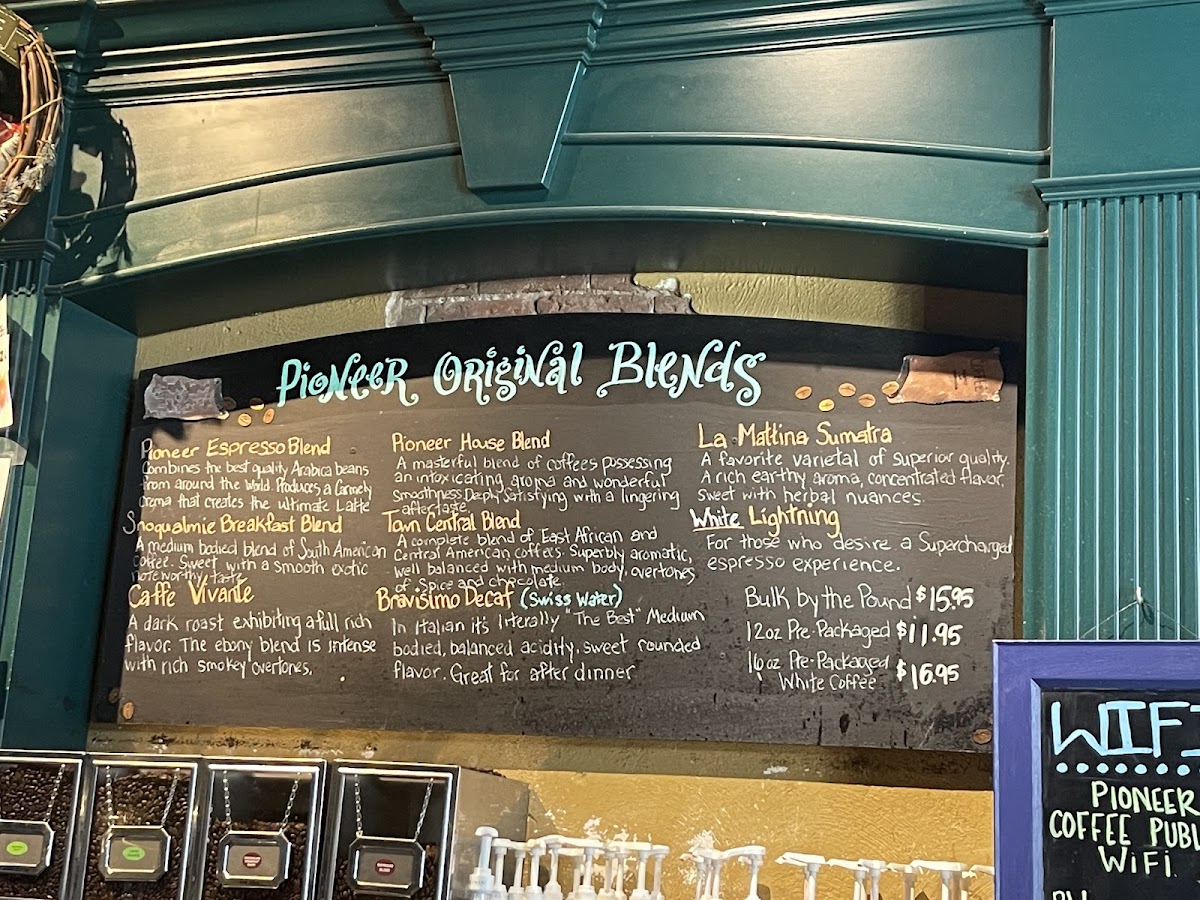 Pioneer Original Blends
Pioneer Espresso Blend
Combines the best quality Arabica beans
from around the World. Produces a Carmely
Crema that creates the ultimate Latte
Snoqualmie Breakfast Blend
A medium bodied blend of South American
Coffee. Sweet with a smooth exotic
noteworthy taste
Caffe Vivante
A dark roast exhibiting a full rich
flavor. The ebony blend is intense
with rich smokey overtones.
Pioneer House Blend
A masterful blend of coffees possessing
an intoxicating aroma and wonderful
smoothness. Deeply Satisfying with a lingering
aftertaste.
Town Central Blend
A complete blend of East African and
Central American coffees. Superbly aromatic,
well balanced with medium body, overtones
of Spice and chocolate.
Bravisimo Decaf (Swiss Water)
In Italian it's literally "The Best" Medium
bodied, balanced acidity, sweet rounded
flavor. Great for after dinner
La Mattina Sumatra
A favorite varietal of superior quality.
A rich earthy aroma, concentrated flavor,
sweet with herbal nuances.
White Lightning
For those who desire a Supercharged
espresso experience.
Bulk by the Pound $15.95
12oz Pre-Packaged $11.95
16oz Pre-Packaged $16.95
White Coffee
WIFI
PIONEER
COFFEE PUBL
WiFi.